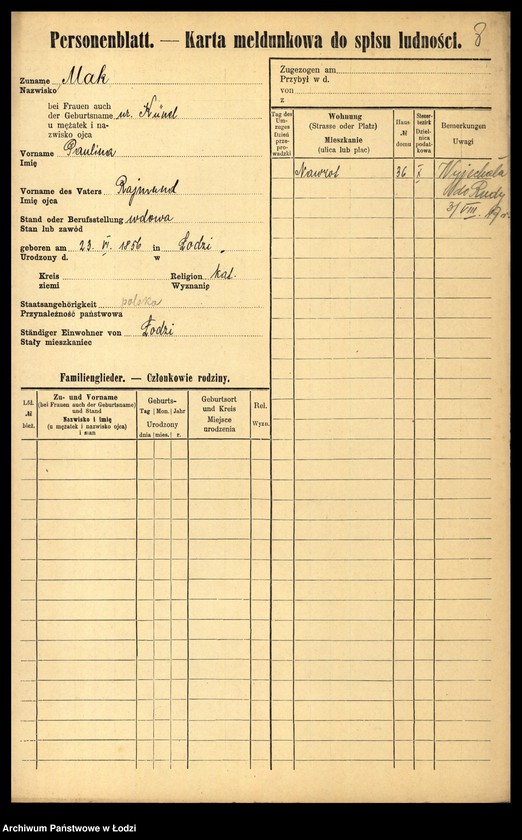 Personenblatt. — Karta meldunkowa do spisu ludności. 8
Zuname Mak
Nazwisko
bei Frauen auch
der Geburtsname ur. Künel
u mężatek i na-
zwisko ojca
Vorname Paulina
Imię
Vorname des Vaters Rajmund
Imię ojca
Stand oder Berufsstellung wdowa
Stan lub zawód
geboren am 23. VI. 1856 in Łodzi
Urodzony d. w
Kreis Religion kat.
ziemi Wyznanię
Staatsangehörigkeit polska
Przynależność państwowa
Ständiger Einwohner von Łodzi
Stały mieszkaniec
Familienglieder. — Członkowie rodziny.
Lfd.
№
bież.
Zu- und Vorname
(bei Frauen auch der Geburtsname)
und Stand
Nazwisko i imię
(u mężatek i nazwisko ojca)
i stan
Geburts-
Tag Mon. Jahr
Urodzony
dnia mies. r.
Geburtsort
und Kreis
Miejsce
urodzenia
Rel.
Wyzn.
Zugezogen am
Przybył w d.
von
z
Tag des
Um-
zuges
Dzień
prze-
pro-
wadzki
Wohnung
(Strasse oder Platz)
Mieszkanie
(ulica lub plac)
Haus
№
domu
Steuer-
bezirk
Dziel-
nica
podat-
kowa
Bemerkungen
Uwagi
Nawrot 36 X Wyjechała
do Rudy
3/VIII. 19 r.
Archiwum Państwowe w Łodzi